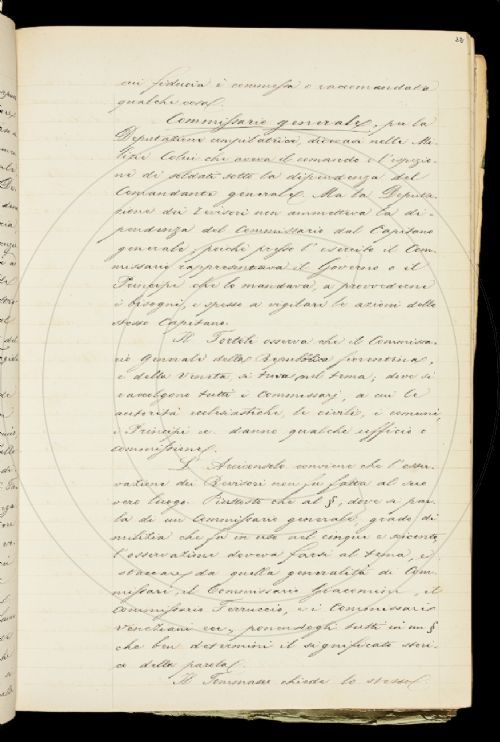 28
cui fiducia è commessa o raccomandata
qualche cosa.
Commissario generale, per la
Deputazione compilatrice, dicevasi nelle Mi-
lizie Colui che aveva il comando e l'ispezio-
ne di soldati sotto la dipendenza del
Comandante generale. Ma la Deputa-
zione dei Revisori non ammetteva la di-
pendenza del Commissario dal Capitano
generale, poiché presso l'esercito il Com-
missario rappresentava il Governo o il
Principe che lo mandava, a provvederne
i bisogni, e spesso a vigilare le azioni dello
stesso Capitano.
Il Tortoli osserva che il Commissa-
rio Generale della Repubblica fiorentina,
e della Veneta si trova nel tema; dove si
ravvolgono tutti i Commissarj, a cui le
autorità ecclesiastiche, le civili, i comuni,
i Principi ec. danno qualche ufficio e
commissione.
L'Arciconsolo conviene che l'osser-
vazione dei Revisori non fu fatta al suo
vero luogo. Piuttosto che al §, dove si par-
la di un Commissario generale, grado di
milizia che fu in uso nel cinque e seicento,
l'osservazione doveva farsi al tema, e
staccare da quella generalità di Com-
missari, il Commissario Giacomini, il
Commissario Ferruccio, e i Commissari
veneziani ec., ponendogli tutti in un §
che ben determini il significato stori-
co della parola.
Il Tommaseo chiede lo stesso.